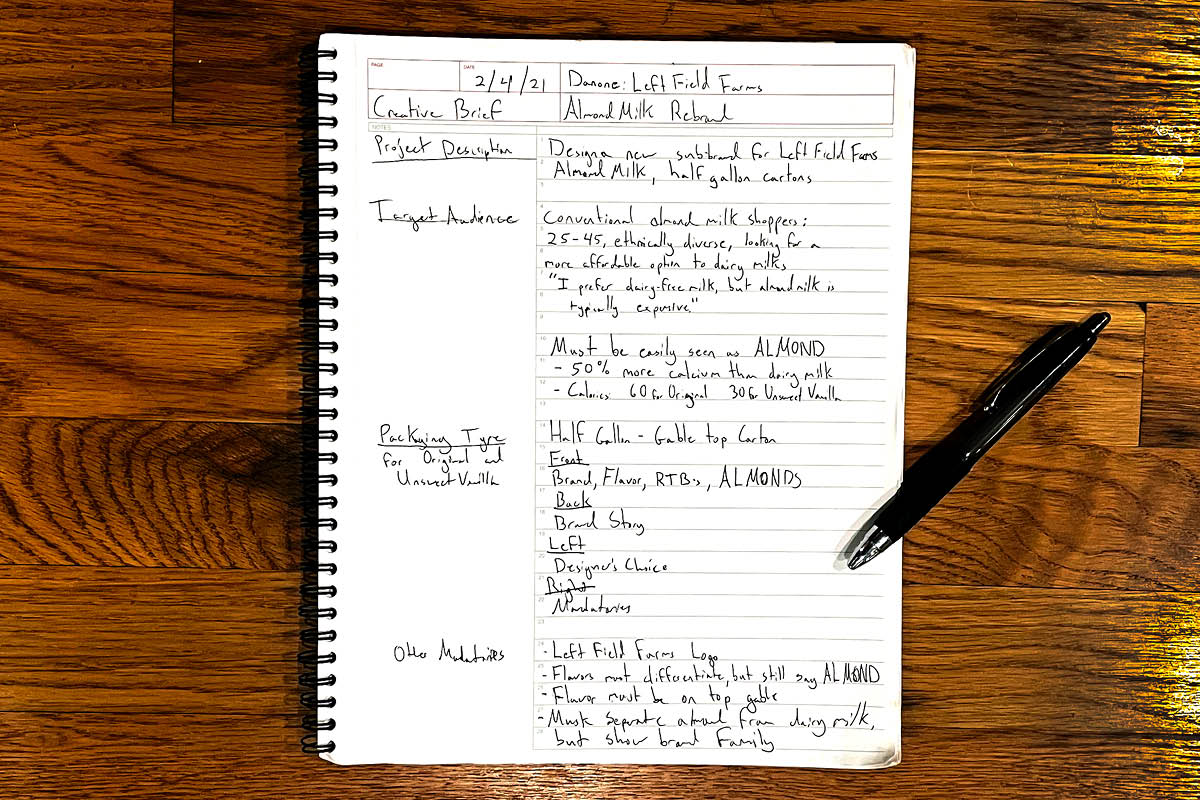 PAGE
DATE
2/4/21
Danone: Left Field Farms
Creative Brief
Almond Milk Rebrand
NOTES
Project Description
Design a new sub-brand for Left Field Farms
Almond Milk, half gallon cartons
Target Audience
Conventional almond milk shoppers:
25-45, ethnically diverse, looking for a
more affordable option to dairy milks
"I prefer dairy-free milk, but almond milk is
typically expensive."
Must be easily seen as ALMOND
- 50% more calcium than dairy milk
- Calories: 60 for Original 30 for Unsweet Vanilla
Packaging Type
for Original and
Unsweet Vanilla
Half Gallon - Gable top Carton
Front
Brand, Flavor, RTB's, ALMONDS
Back
Brand Story
Left
Designer's Choice
Right
Mandatories
Other Mandatories
- Left Field Farms Logo
- Flavors must differentiate, but still say ALMOND
- Flavor must be on top gable
- Must separate almond from dairy milk,
but show brand Family